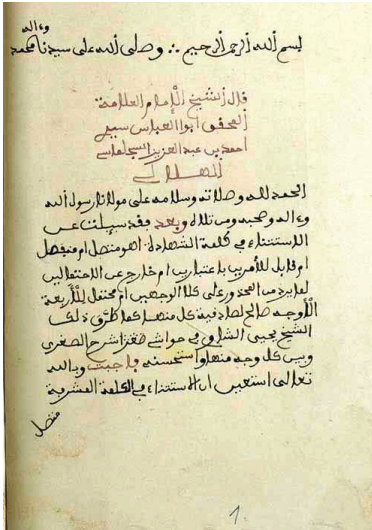 وءاله
بسم الله الرحمن الرحيم ∴ وصلى الله على سيدنا محمد
قال الشيخ الإمام العلامة
المحقق أبو العباس سيدي
احمد بن عبد العزيز السجلماسي
الهلالي
الحمد لله وصلاته وسلامه على مولانا رسول الله
وءاله وصحبه ومن تلاه وبعد فقد سيلت عن
الاستثناء في كلمة الشهادة اهو متصل ام منفصل
ام قابل للأمرين باعتبارين ام خارج عن الاحتمالين
لما يرد من المحذور على كلا الوجهين ام محتمل للأربعة
الأوجه صالح لصادقية كل منها كما طرق ذلك
الشيخ يحيى الشاوي في حواشي شرح الصغرى
وبين كل وجه منها واستحسنه فاجبت وبالله
تعالى استعين ان الاستثناء في الكلمة المشرفة
متصل
1.